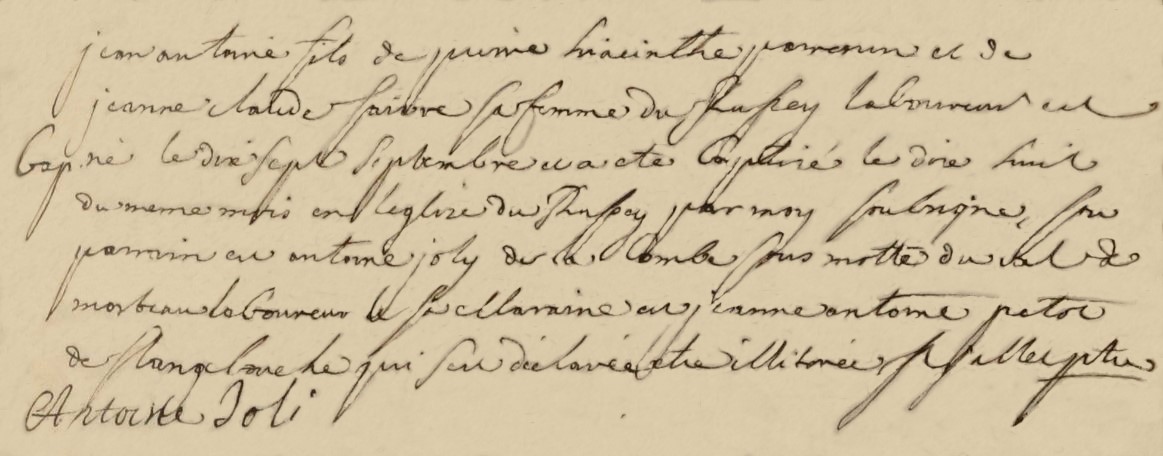 jean antoine fils de pierre hiacinthe parrenin et de
jeanne claude faivre sa femme du Russey laboureur est
Bap. né le dixsept septembre et a ete baptizé le dixe huit
du meme mois en leglize du Russey par moy soubsigné, son
parrain est antoine joly de la Combe sous motte du val de
morteau laboureur & sa Maraine est jeanne antoine petot
de flangebouche qui sest déclarée etre illitérée ptre
Antoine Joli